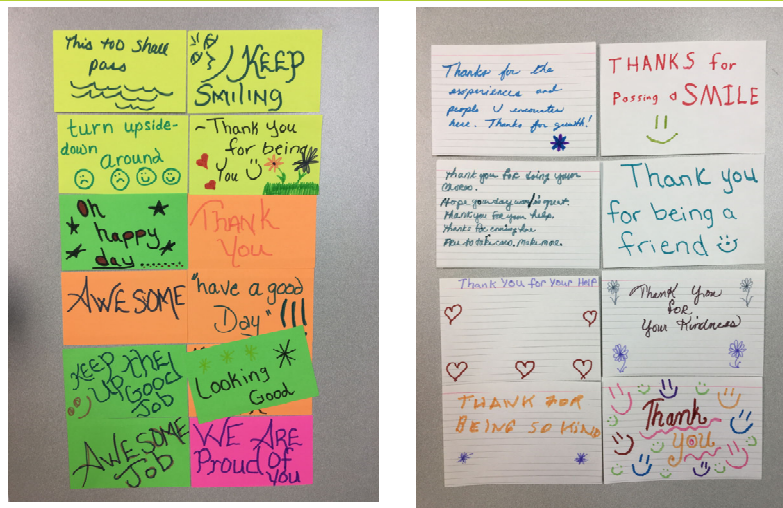 This too shall
pass
KEEP
SMILING
turn upside-
down
around
~Thank you
for being
You
Oh
happy
day........
THANK
YOU
AWESOME
"have a good
Day" !!!
KEEP THE
UP GOOD
JOB
Looking
Good
AWESOME
JOB
WE ARE
Proud of
you
Thanks for the
experiences and
people U encounter
here. Thanks for growth!
THANKS for
Passing a SMILE
Thank you for doing your
Hope your day was great.
Thank you for your help.
Thanks for
Thank you
for being a
friend
Thank You for Your Help
Thank You
FOR
Your Kindness
THANK FOR
BEING SO KIND
Thank
you